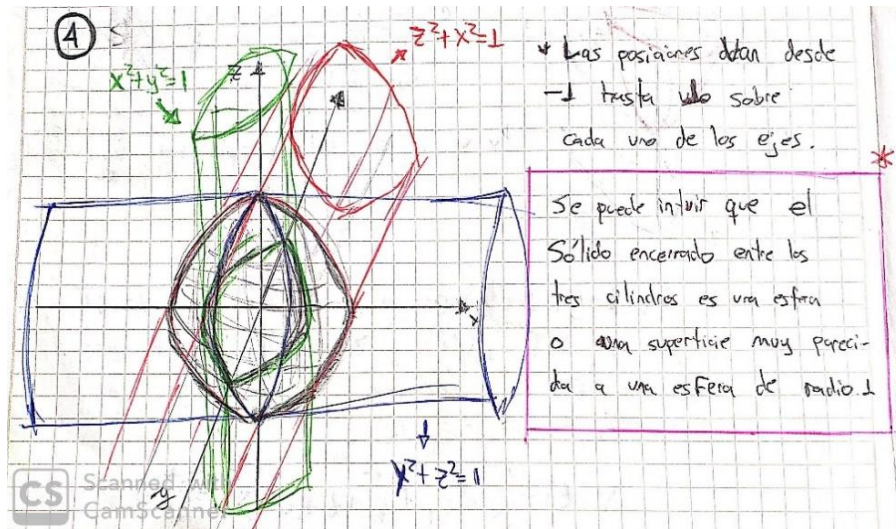 4
x²+y²=1
z
z²+x²=1
x
y
x²+z²=1
* Las posiciones
desde
-1 hasta
sobre
cada uno de los ejes.
*
Se puede intuir que el
Sólido encerrado entre los
tres cilindros es una esfera
o una superficie muy pareci-
da a una esfera de radio 1
CS Scanned with
CamScanner